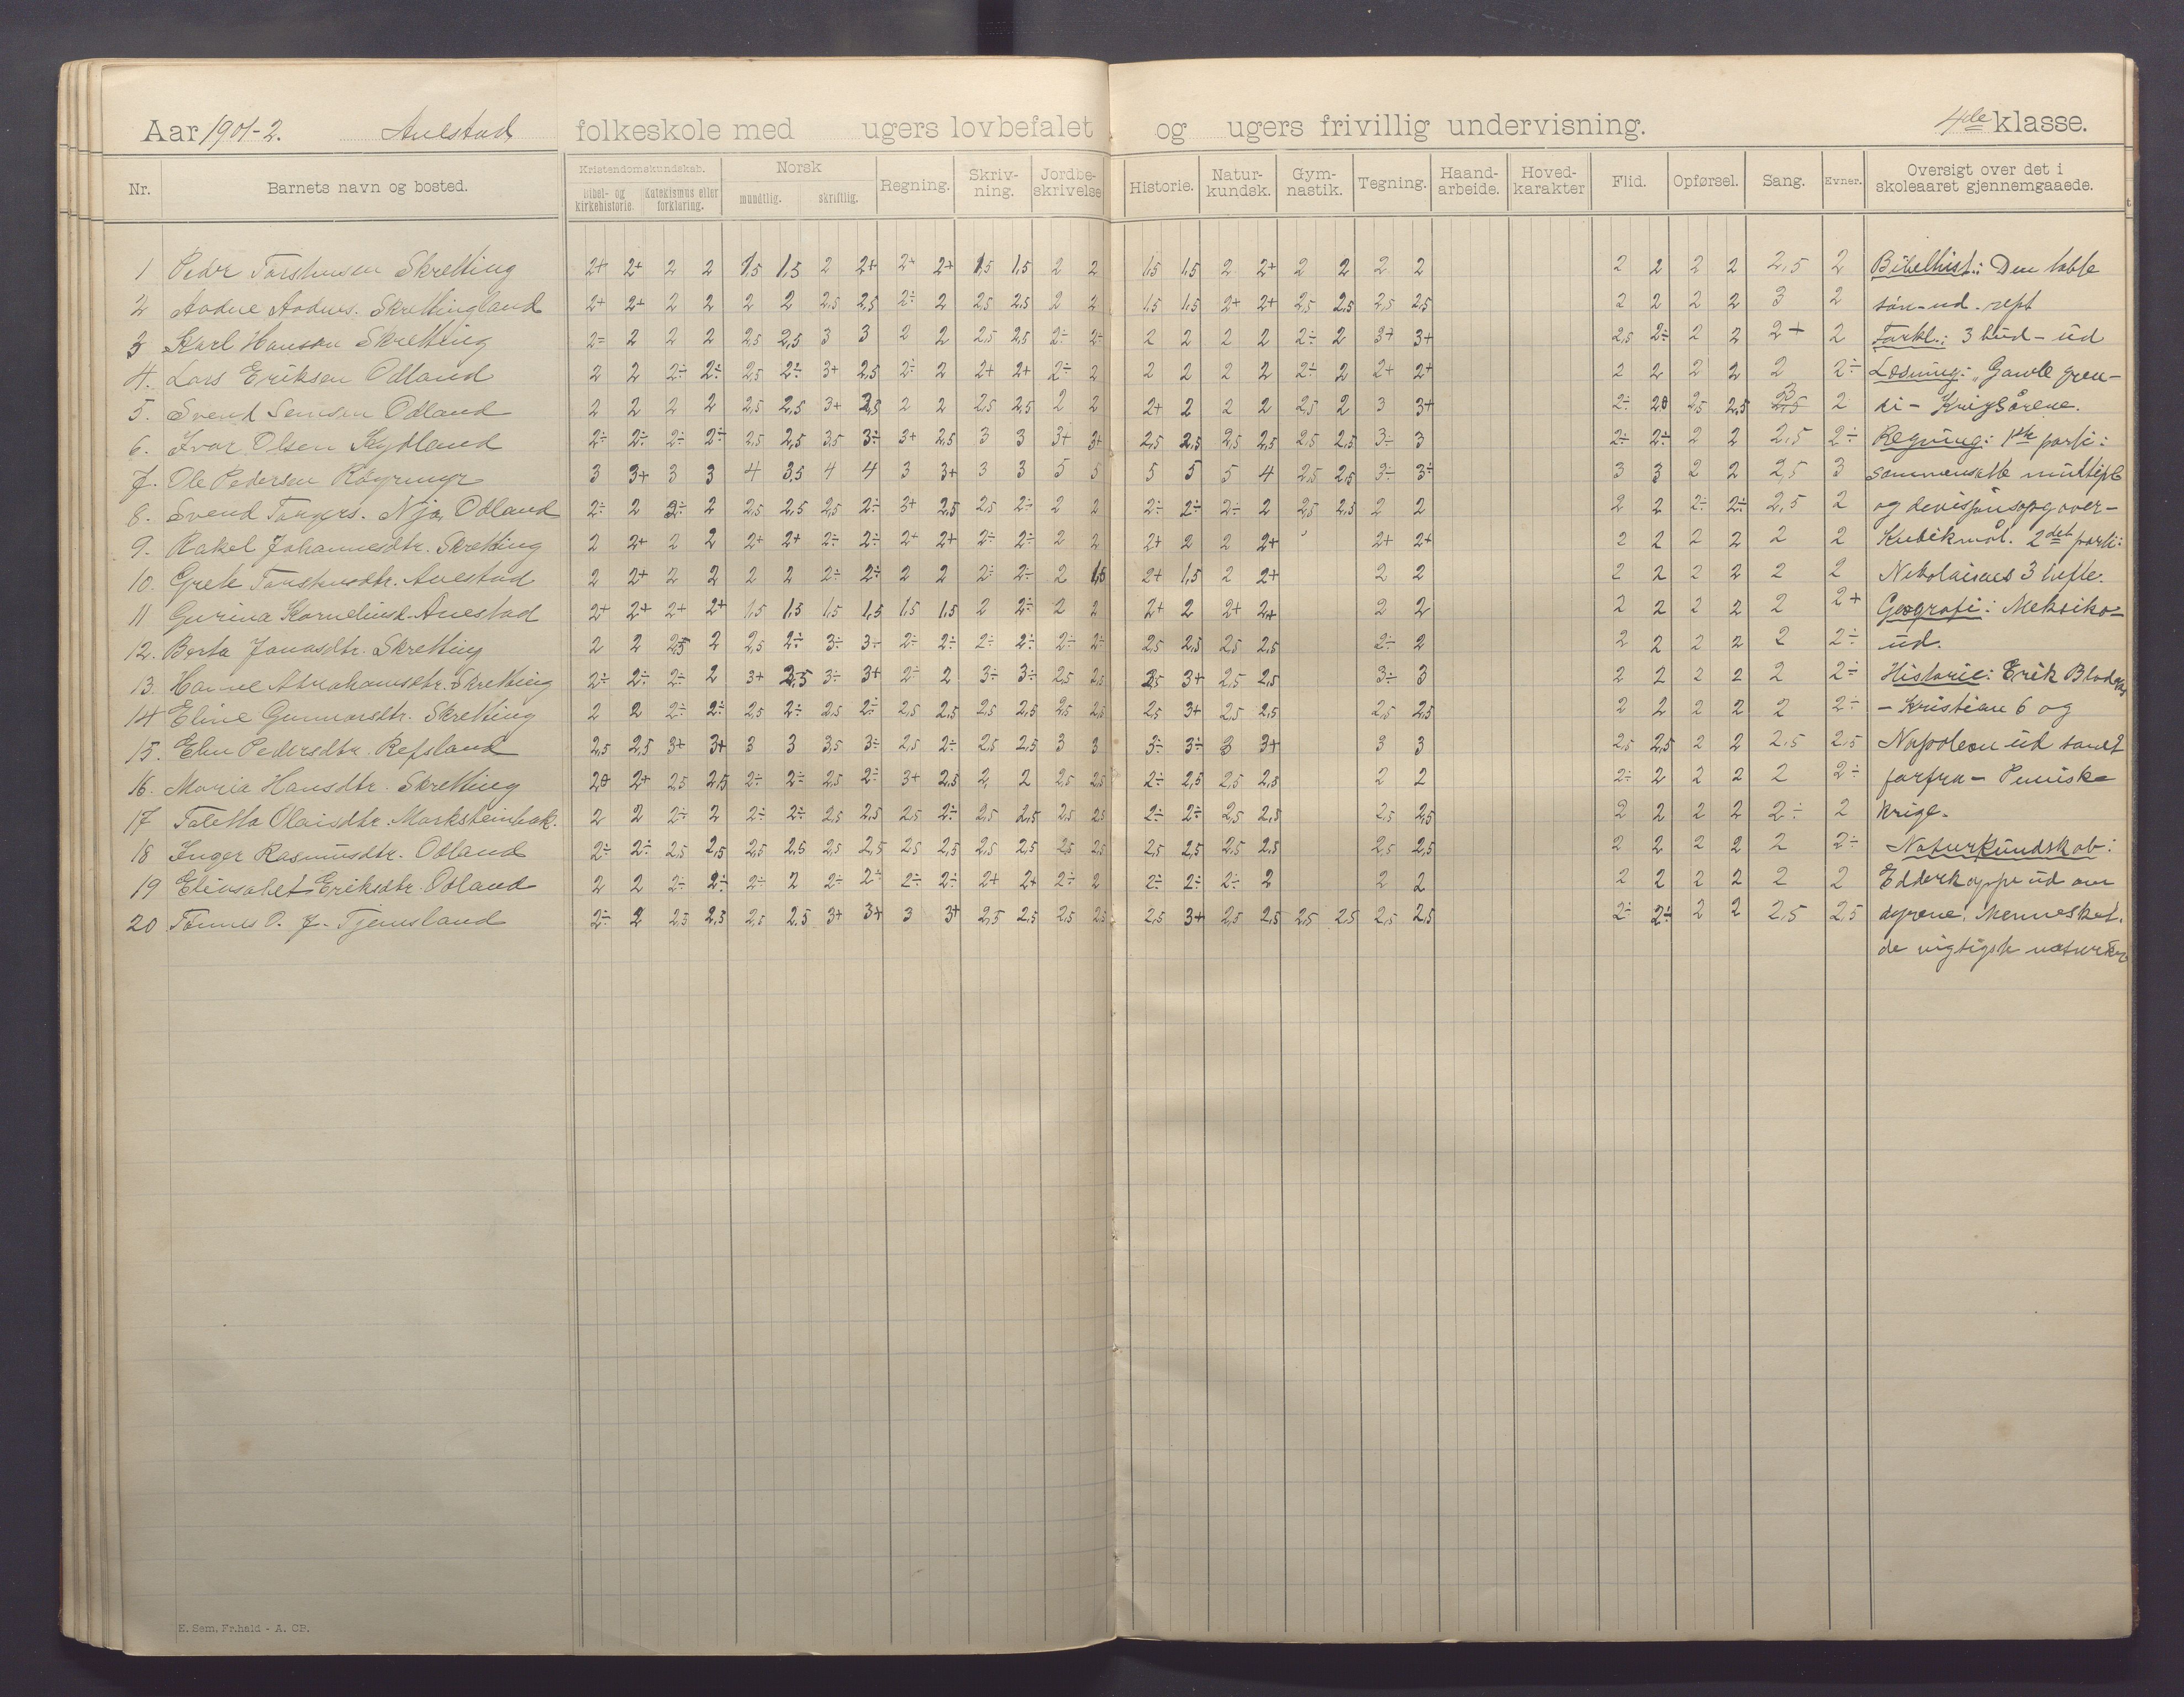 Aar 1901-2. Auestad folkeskole med ugers lovbefalet og ugers frivillig undervisning. 4de klasse.
Nr. Barnets navn og bosted. Kristendomskundskab. Bibel- og kirkehistorie. Katekismus eller forklaring. Norsk mundtlig. skriftlig. Regning. Skriv-ning. Jordbe-skrivelse Historie. Natur-kundsk. Gym-nastik. Tegning. Haand-arbeide. Hoved-karakter Flid. Opførsel. Sang. Evner. Oversigt over det i skoleaaret gjennemgaaede.
1 Peder Torstensen Skretting 2+ 2+ 2 2 1,5 1,5 2 2+ 2+ 2+ 1,5 1,5 2 2 1,5 1,5 2 2+ 2 2 2 2 2 2 2 2 2,5 2 Bibelhist.: Den tabte
2 Aadne Aadnes. Skrettingland 2+ 2+ 2 2 2 2 2,5 2,5 2÷ 2 2,5 2,5 2 2 1,5 1,5 2+ 2+ 2,5 2,5 2,5 2,5 2 2 2 2 3 2 søn-ud. rept
3 Karl Hanson Skretting 2- 2 2 2 2,5 2,5 3 3 2 2 2,5 2,5 2÷ 2÷ 2 2 2 2 2÷ 2 3+ 3+ 2,5 2÷ 2 2 2+ 2 Forkl.: 3 bud-ud
4. Lars Eriksen Odland 2 2 2÷ 2÷ 2,5 2÷ 3+ 2,5 2÷ 2 2+ 2+ 2÷ 2 2 2 2 2 2÷ 2 2+ 2+ 2 2 2 2 2 2÷ Læsning: "Gamle gren-
5. Svend Semsen Odland 2 2 2 2 2,5 2,5 3+ 2,5 2 2 2,5 2,5 2 2 2+ 2 2 2 2,5 2 3 3+ 2÷ 20 2,5 2,5 2,5 2 di - Krigsårene.
6. Ivar Olsen Søydland 2÷ 2÷ 2÷ 2÷ 2,5 2,5 3,5 3÷ 3+ 2,5 3 3 3+ 3+ 2,5 2,5 2,5 2,5 2,5 2,5 3÷ 3 2÷ 2÷ 2 2 2,5 2÷ Regning: 1ste parti:
7. Ole Pedersen Røyrmyr 3 3+ 3 3 4 3,5 4 4 3 3+ 3 3 5 5 5 5 5 4 2,5 2,5 3÷ 3÷ 3 3 2 2 2,5 3 sammensatte multipl
8. Svend Torgers. Njå, Odland 2÷ 2 2÷ 2 2,5 2,5 2,5 2÷ 3+ 2,5 2,5 2÷ 2 2 2÷ 2÷ 2÷ 2 2,5 2,5 2 2 2 2 2÷ 2÷ 2,5 2 og devisjonsopg over-
9. Rakel Johannesdtr. Skretting 2 2+ 2 2 2+ 2+ 2÷ 2÷ 2+ 2+ 2÷ 2÷ 2 2 2+ 2 2 2+ 2+ 2+ 2 2 2 2 2 2 Kubikmål. 2det parti:
10. Grete Torstensdtr. Auestad 2 2+ 2 2 2 2 2÷ 2÷ 2 2 2÷ 2÷ 2 1,5 2+ 1,5 2 2+ 2 2 2 2 2 2 2 2 Nikolaisens 3 hefte.
11 Gurina Kornelinsd. Auestad 2+ 2+ 2+ 2+ 1,5 1,5 1,5 1,5 1,5 1,5 2 2÷ 2 2 2+ 2 2+ 2+ 2 2 2 2 2 2 2 2+ Geografi: Meksiko-
12. Berta Jonasdtr. Skretting 2 2 2,5 2 2,5 2÷ 3÷ 3÷ 2÷ 2÷ 2÷ 2÷ 2÷ 2÷ 2,5 2,5 2,5 2,5 2÷ 2 2 2 2 2 2 2÷ ud.
13. Hanne Abrahamsdtr. Skretting 2÷ 2÷ 2÷ 2 3+ 2,5 3÷ 3+ 2÷ 2 3÷ 3÷ 2,5 2,5 2,5 3+ 2,5 2,5 3÷ 3 2 2 2 2 2 2÷ Historie: Erik Blodøks
14 Eline Gunnarsdtr. Skretting 2 2 2÷ 2÷ 2,5 2÷ 2,5 2÷ 2,5 2,5 2,5 2,5 2,5 2,5 2,5 3+ 2,5 2,5 2,5 2,5 2 2 2 2 2 2÷ - Kristian 6 og
15. Elen Pedersdtr. Refsland 2,5 2,5 3+ 3+ 3 3 3,5 3÷ 2,5 2÷ 2,5 2,5 3 3 3÷ 3÷ 3 3+ 3 3 2,5 2,5 2 2 2,5 2,5 Napoleon ud samt
16. Maria Hansdtr. Skretting 20 2+ 2,5 2,5 2÷ 2÷ 2,5 2÷ 3+ 2,5 2 2 2,5 2,5 2÷ 2,5 2,5 2,5 2 2 2÷ 2 2 2 2 2÷ forfra - Puniske
17 Taletta Olaisdtr. Marksteinbak. 2 2 2÷ 2 2÷ 2÷ 2,5 2,5 2,5 2÷ 2,5 2,5 2,5 2,5 2÷ 2÷ 2,5 2,5 2,5 2,5 2 2 2 2 2÷ 2 krige.
18 Inger Rasmusdtr. Odland 2÷ 2÷ 2,5 2,5 2,5 2,5 2,5 2,5 2,5 2,5 2,5 2,5 2,5 2,5 2,5 2,5 2,5 2,5 2,5 2,5 2 2 2 2 2 2÷ Naturkundskab:
19 Elinsabet Eriksdtr. Odland 2 2 2÷ 2÷ 2÷ 2 2÷ 2÷ 2÷ 2÷ 2+ 2+ 2÷ 2 2÷ 2÷ 2÷ 2 2 2 2 2 2 2 2 2 Edderkoppe ud om
20 Tønnes O. J. Tjemsland 2÷ 2 2,5 2,5 2,5 2,5 3+ 3+ 3 3+ 2,5 2,5 2,5 2,5 2,5 3+ 2,5 2,5 2,5 2,5 2,5 2,5 2÷ 2÷ 2 2 2,5 2,5 dyrene. Mennesket.
de vigtigste
E. Sem, Fr.hald - A. CB.